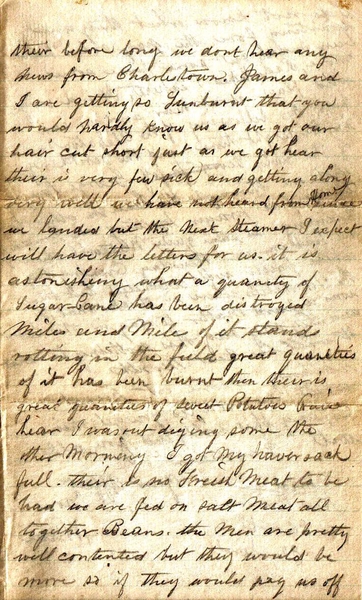 their before long we dont hear any
news from Charlestown. James and
I are getting so Sunburnt that you
would hardly know us as we got our
hair cut short just as we got hear
their is very few sick and getting along
very well we have not heard from Home since
we landed but the Next Steamer I expect
will have the letters for us. it is
astonishing what a quanety of
Sugar Cane has been distroyed
Miles and Mile of it stands
rotting in the field great quaneties
of it has been burnt then their is
great quaneties of sweet Potatoes
hear I was out diging some the
other Morneng I got my haversack
full. their is no Freish Meat to be
had we are fed on salt Meat all
together Beans. the Men are pretty
well contented but they would be
more so if they would pay us off